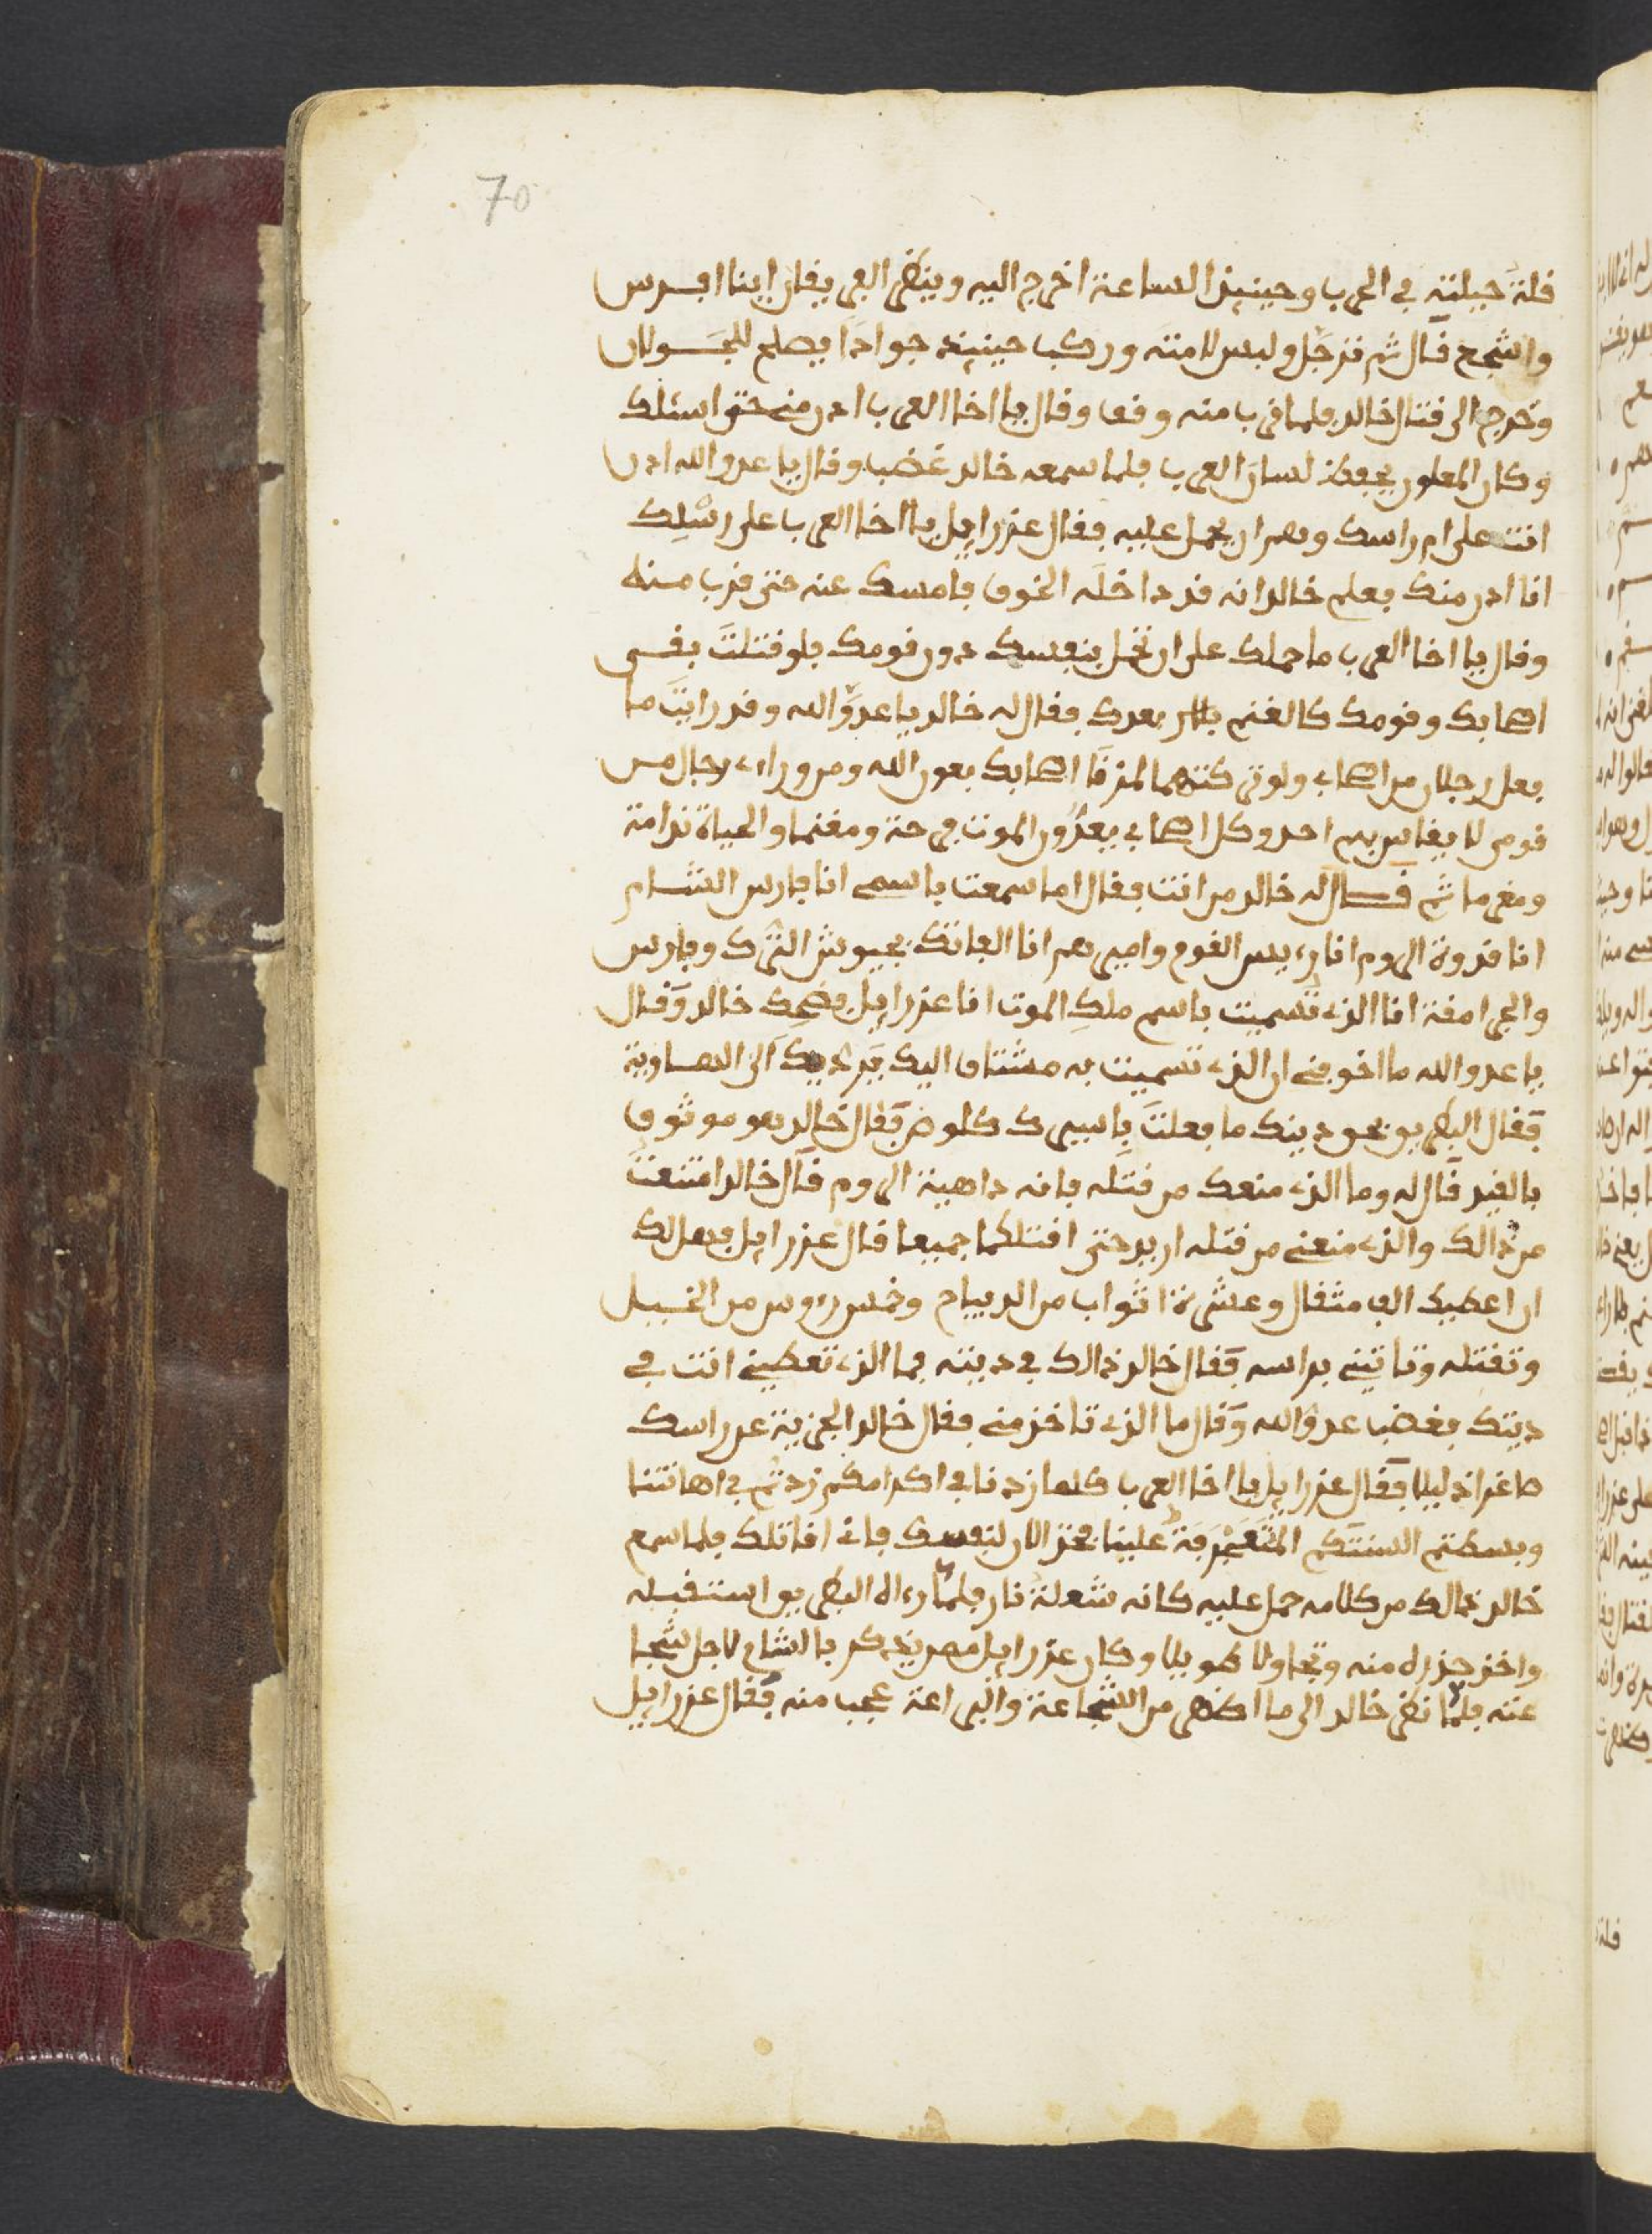 70
قلة حيلته في الحرب وحينيذ الساعة اخرج اليه وينظر الفريقان اينا افرس
واشجع قال ثم ترجل ولبس لامته وركب حينيذ جوادا يصلح للجولان
وخرج الى قتال خالد فلما قرب منه وقف وقال يا اخا العرب ادن مني حتى اسئلك
وكان الملعون يحفظ لسان العرب فلما سمعه خالد غضب وقال يا عدو الله ادن
انت على ام راسك وهم ان يحمل عليه فقال عزرايل يا اخا العرب على رسلك
انا ادن منك فعلم خالد انه قد داخله الخوف فامسك عنه حتى قرب منه
وقال يا اخا العرب ما حملك على ان تحمل بنفسك دون قومك فلو قتلت بقي
اصحابك وقومك كالغنم بلا بعدك فقال له خالد يا عدو الله وقد رايت ما
فعل رجلان من اصحابي ولو تركتهما لمزقا اصحابك بعون الله ومن وراءي رجال من
قومي لا يقاس بهم احد وكل اصحابي يعدون الموت فرحة ومغنما والحياة ندامة
ومغرما ثم قال له خالد من انت فقال اما سمعت باسمي انا فارس الشام
انا قدوة الروم انا رءيس القوم واميرهم انا الفاتك بجيوش الترك وفارس
والجرامقة انا الذي تسميت باسم ملك الموت انا عزرايل فضحك خالد وقال
يا عدو الله ما اخوفني ان الذي تسميت به مشتاق اليك يرديك الى الهاوية
فقال البطريق بحق دينك ما فعلت باسيرك كلوض فقال خالد هو موثوق
بالقيد قال له وما الذي منعك من قتله فانه داهية الروم قال خالد امتنعت
من ذالك والذي منعني من قتله اريد حتى اقتلكما جميعا قال عزرايل فهل لك
ان اعطيك الف مثقال وعشرة اثواب من الديباج وخمس رءوس من الخيل
وتقتله وتاتيني براسه فقال خالد ذالك في ديته فما الذي تعطيني انت في
ديتك فغضب عدو الله وقال ما الذي تاخذ مني فقال خالد الجزية عن راسك
صاغرا ذليلا فقال عزرايل يا اخا العرب كلما زدنا في اكرامكم زدتم في اهانتنا
وبسطتم السنتكم المتعجرفة علينا فخذ الان لنفسك فاني اقاتلك فلما سمع
خالد ذالك من كلامه حمل عليه كانه شعلة نار فلما رءاه البطريق استقبله
واخذ حذره منه وتجاولا طويلا وكان عزرايل ممن يذكر بالشام لاجل شجا
عته فلما نظر خالد الى ما اظهر من الشجاعة والبراعة عجب منه فقال عزرايل